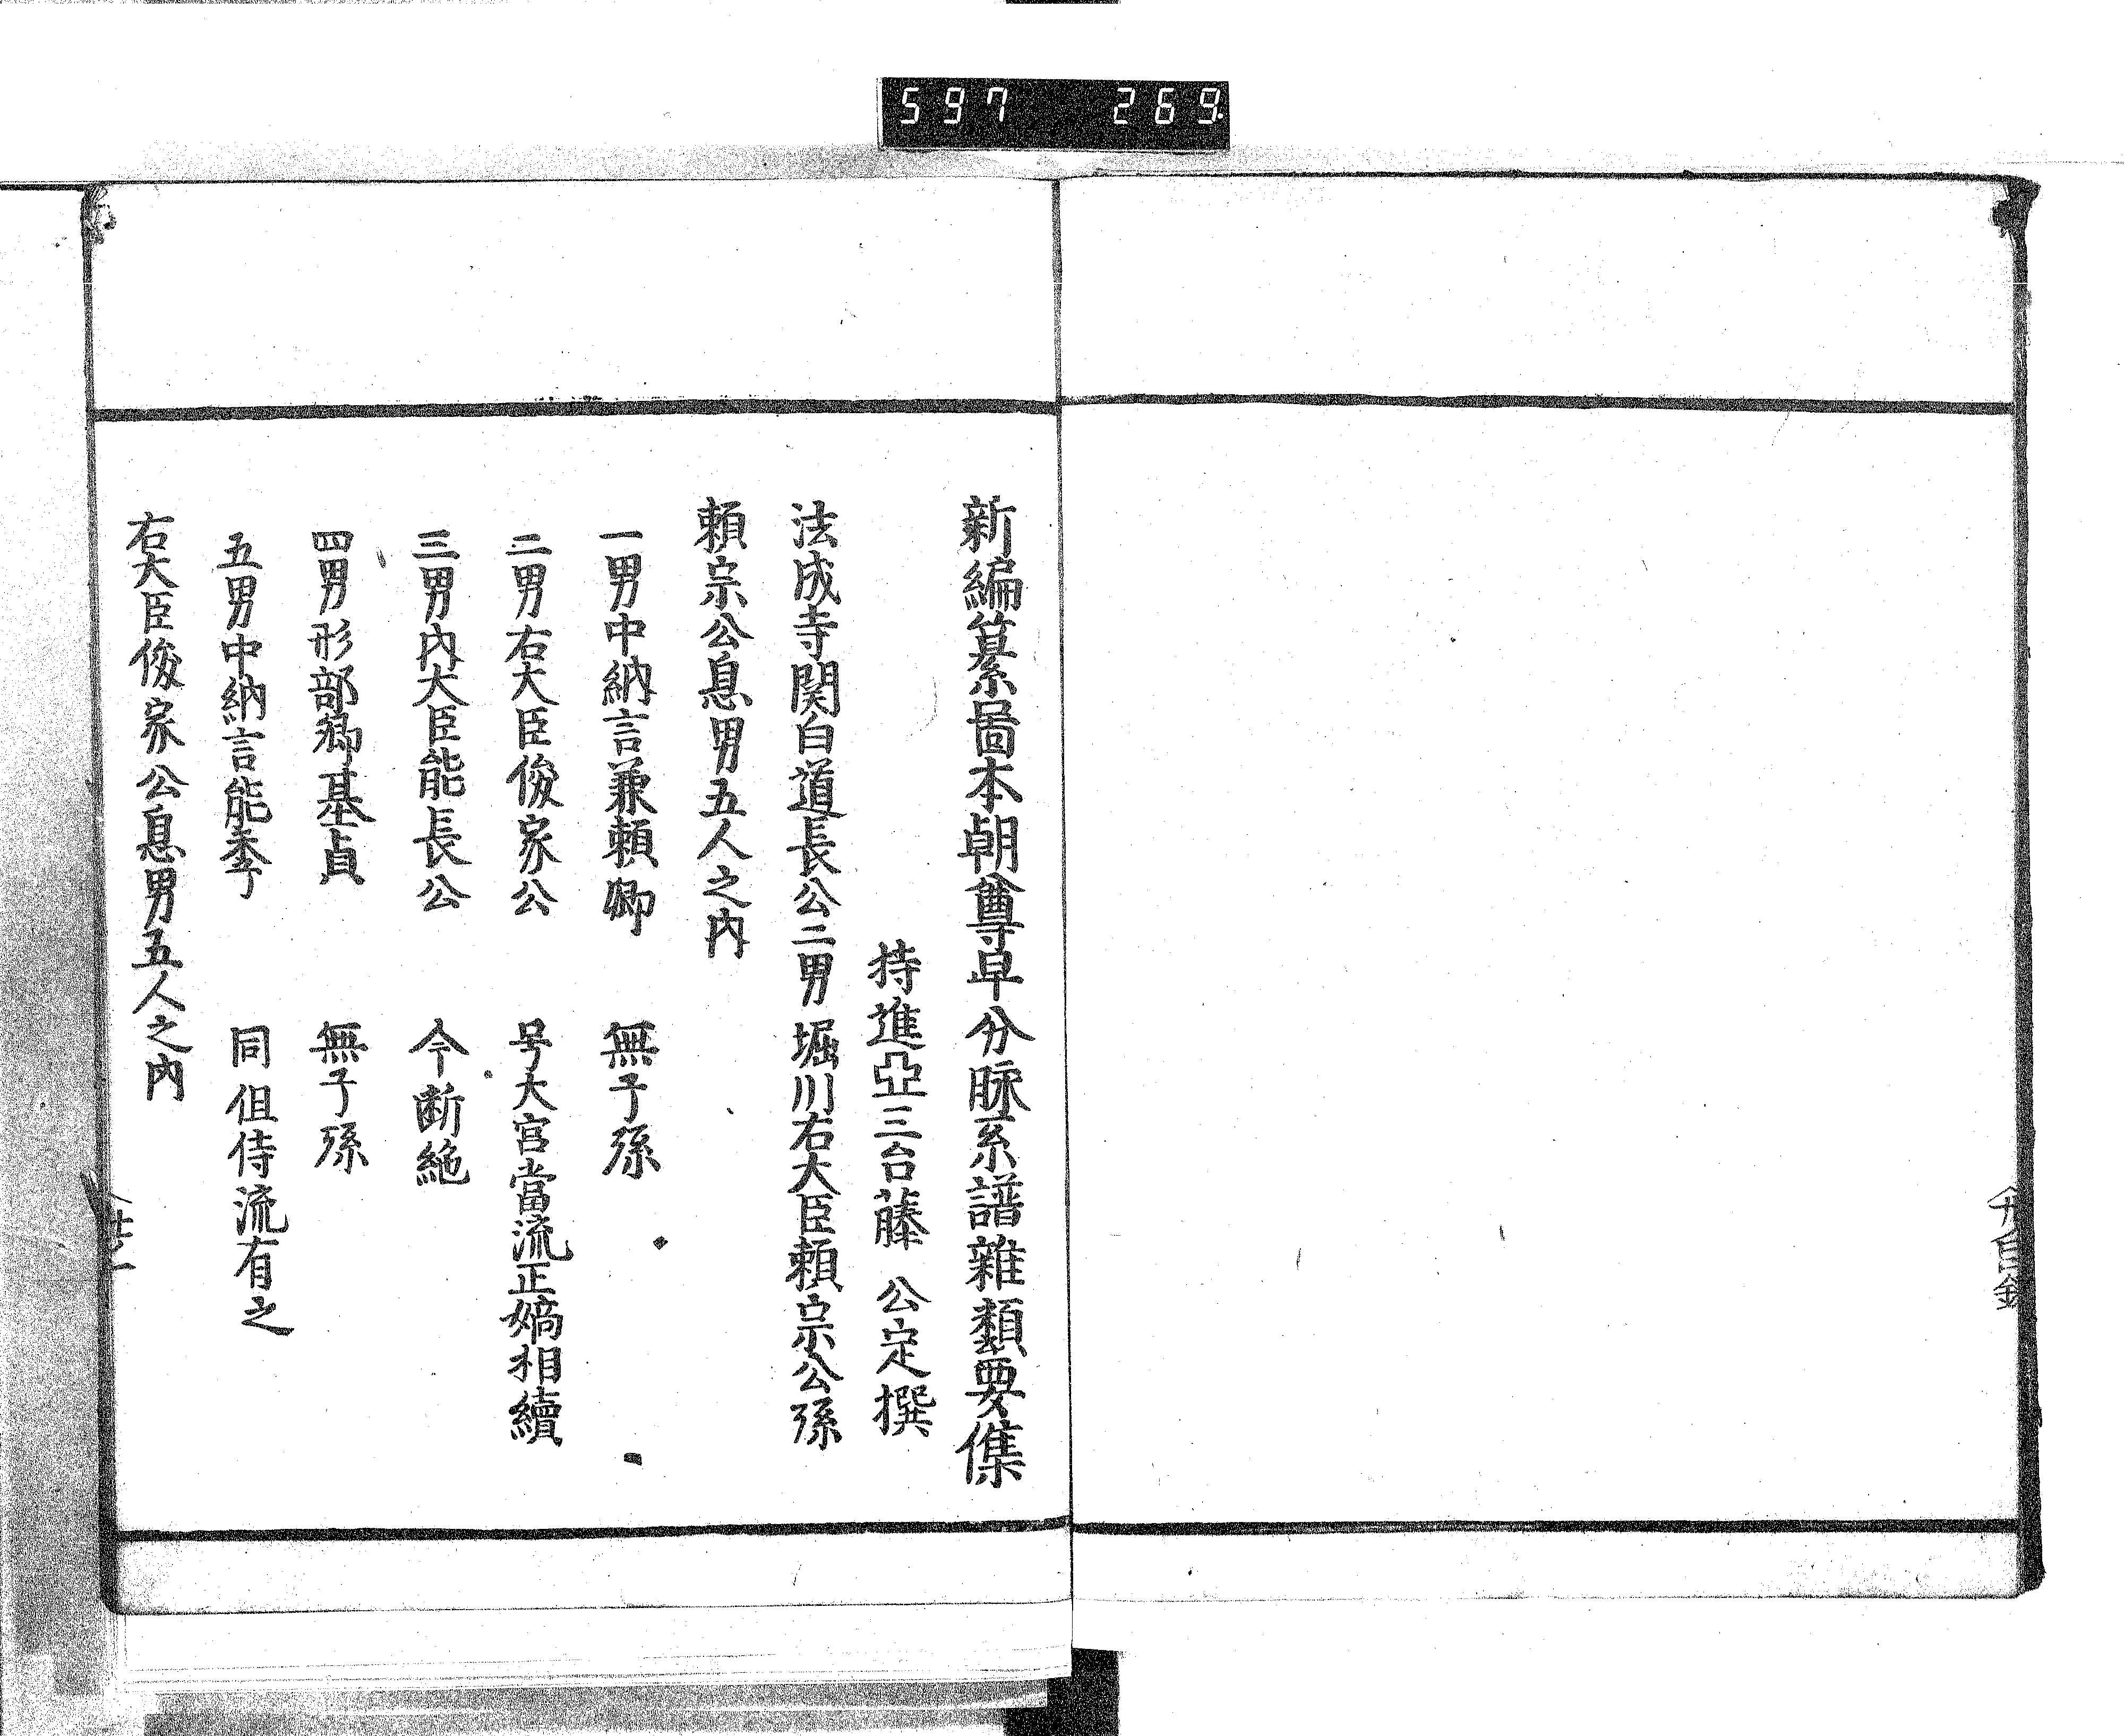 597 269
新編纂啚本朝尊卑分脉系譜雜類要集
持進亞三台藤 公定撰
法成寺関白道長公二男 堀川右大臣頼宗公孫
頼宗公息男五人之内
一男中納言兼頼卿 無子孫
二男右大臣俊家公 号大宮當流正嫡相續
三男内大臣能長公 今断絶
四男形部卿基貞 無子孫
五男中納言能季 同但侍流有之
右大臣俊家公息男五人之内